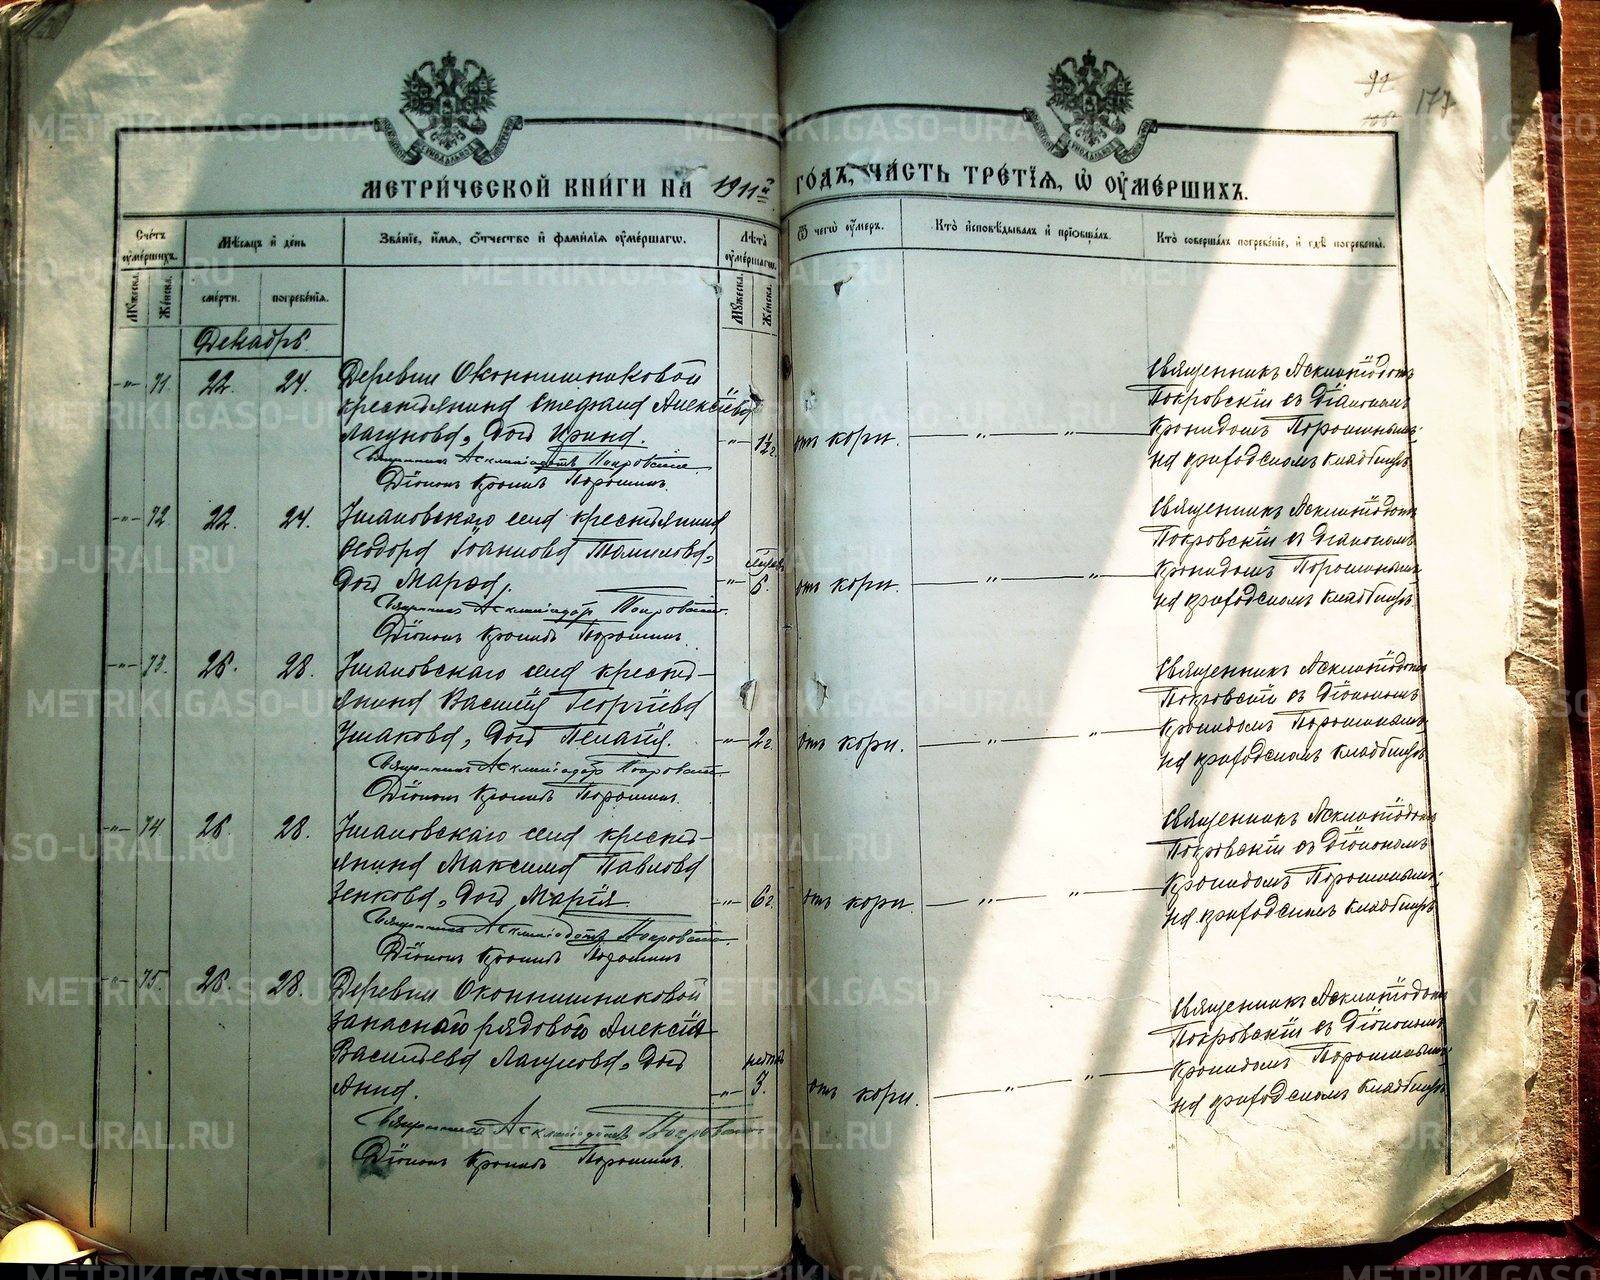 91
177
МЕТРИ́ЧЕСКОЙ КНИ́ГИ НА 1911й ГО́ДЪ, ЧА́СТЬ ТРЕ́ТІЯ, Ѡ ОУМЕ́РШИХЪ.
Сче́тъ оуме́ршихъ.
Мѣ́сяцъ и де́нь
Зва́ніе, и́мя, о́тчество и фами́лія оуме́ршагѡ.
Лѣ́та оуме́ршагѡ.
Ѿ чегѡ̀ оу́меръ.
Кто̀ исповѣ́дывалъ и пріобща́лъ.
Кто̀ соверша́лъ погребе́ніе, и гдѣ̀ погребены̀.
Мꙋ́жеска. Же́нска. сме́рти. погребе́нія. Мꙋ́жеска. Же́нска.
Декабрь
-"- 71. 22. 24. Деревни Оконнишниковой
крестьянина Стефана Алексѣева
Лагунова, дочь Ирина. -"- 1½ г. отъ кори. — " — " —
Священникъ Асклипіодотъ Покровскій
Діаконъ Кронидъ Порошинъ.
Священникъ Асклипіодотъ
Покровскій съ діакономъ
Кронидомъ Порошинымъ
на приходскомъ кладбищѣ
-"- 72. 22. 24. Ушаковскаго села крестьянина
Ѳеодора Іоаннова
дочь Марѳа. -"- 6. отъ кори. — " — " —
Священникъ Асклипіодотъ Покровскій
Діаконъ Кронидъ Порошинъ.
Священникъ Асклипіодотъ
Покровскій съ діакономъ
Кронидомъ Порошинымъ
на приходскомъ кладбищѣ
-"- 73. 26. 28. Ушаковскаго села кресть-
янина Василія Георгіева
Ушакова, дочь Пелагія. -"- 2 г. отъ кори. — " — " —
Священникъ Асклипіодотъ Покровскій
Діаконъ Кронидъ Порошинъ.
Священникъ Асклипіодотъ
Покровскій съ діакономъ
Кронидомъ Порошинымъ
на приходскомъ кладбищѣ
-"- 74. 26. 28. Ушаковскаго села кресть-
янина Максима Павлова
Зенкова, дочь Марія. -"- 6 г. отъ кори. — " — " —
Священникъ Асклипіодотъ Покровскій
Діаконъ Кронидъ Порошинъ
Священникъ Асклипіодотъ
Покровскій съ діакономъ
Кронидомъ Порошинымъ
на приходскомъ кладбищѣ
-"- 75. 26. 28. Деревни Оконнишниковой
запаснаго рядового Алексѣя
Васильева Лагунова, дочь
Анна. -"- 3. отъ кори. — " — " —
Священникъ Асклипіодотъ Покровскій
Діаконъ Кронидъ Порошинъ.
Священникъ Асклипіодотъ
Покровскій съ діакономъ
Кронидомъ Порошинымъ
на приходскомъ кладбищѣ
METRIKI.GASO-URAL.RU